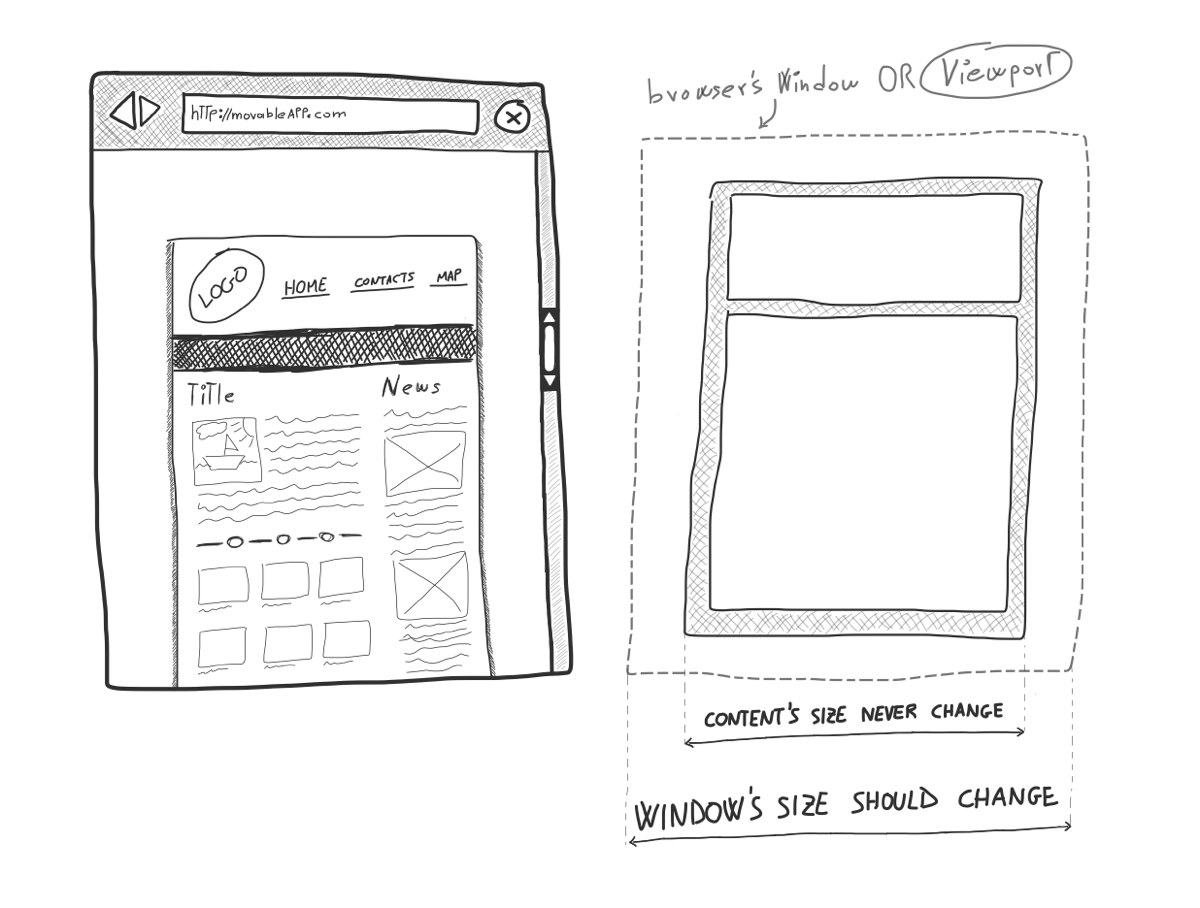 http://movableAPP.com
LOGO
HOME CONTACTS MAP
Title
News
browser's Window OR Viewport
CONTENT'S SIZE NEVER CHANGE
WINDOW'S SIZE SHOULD CHANGE